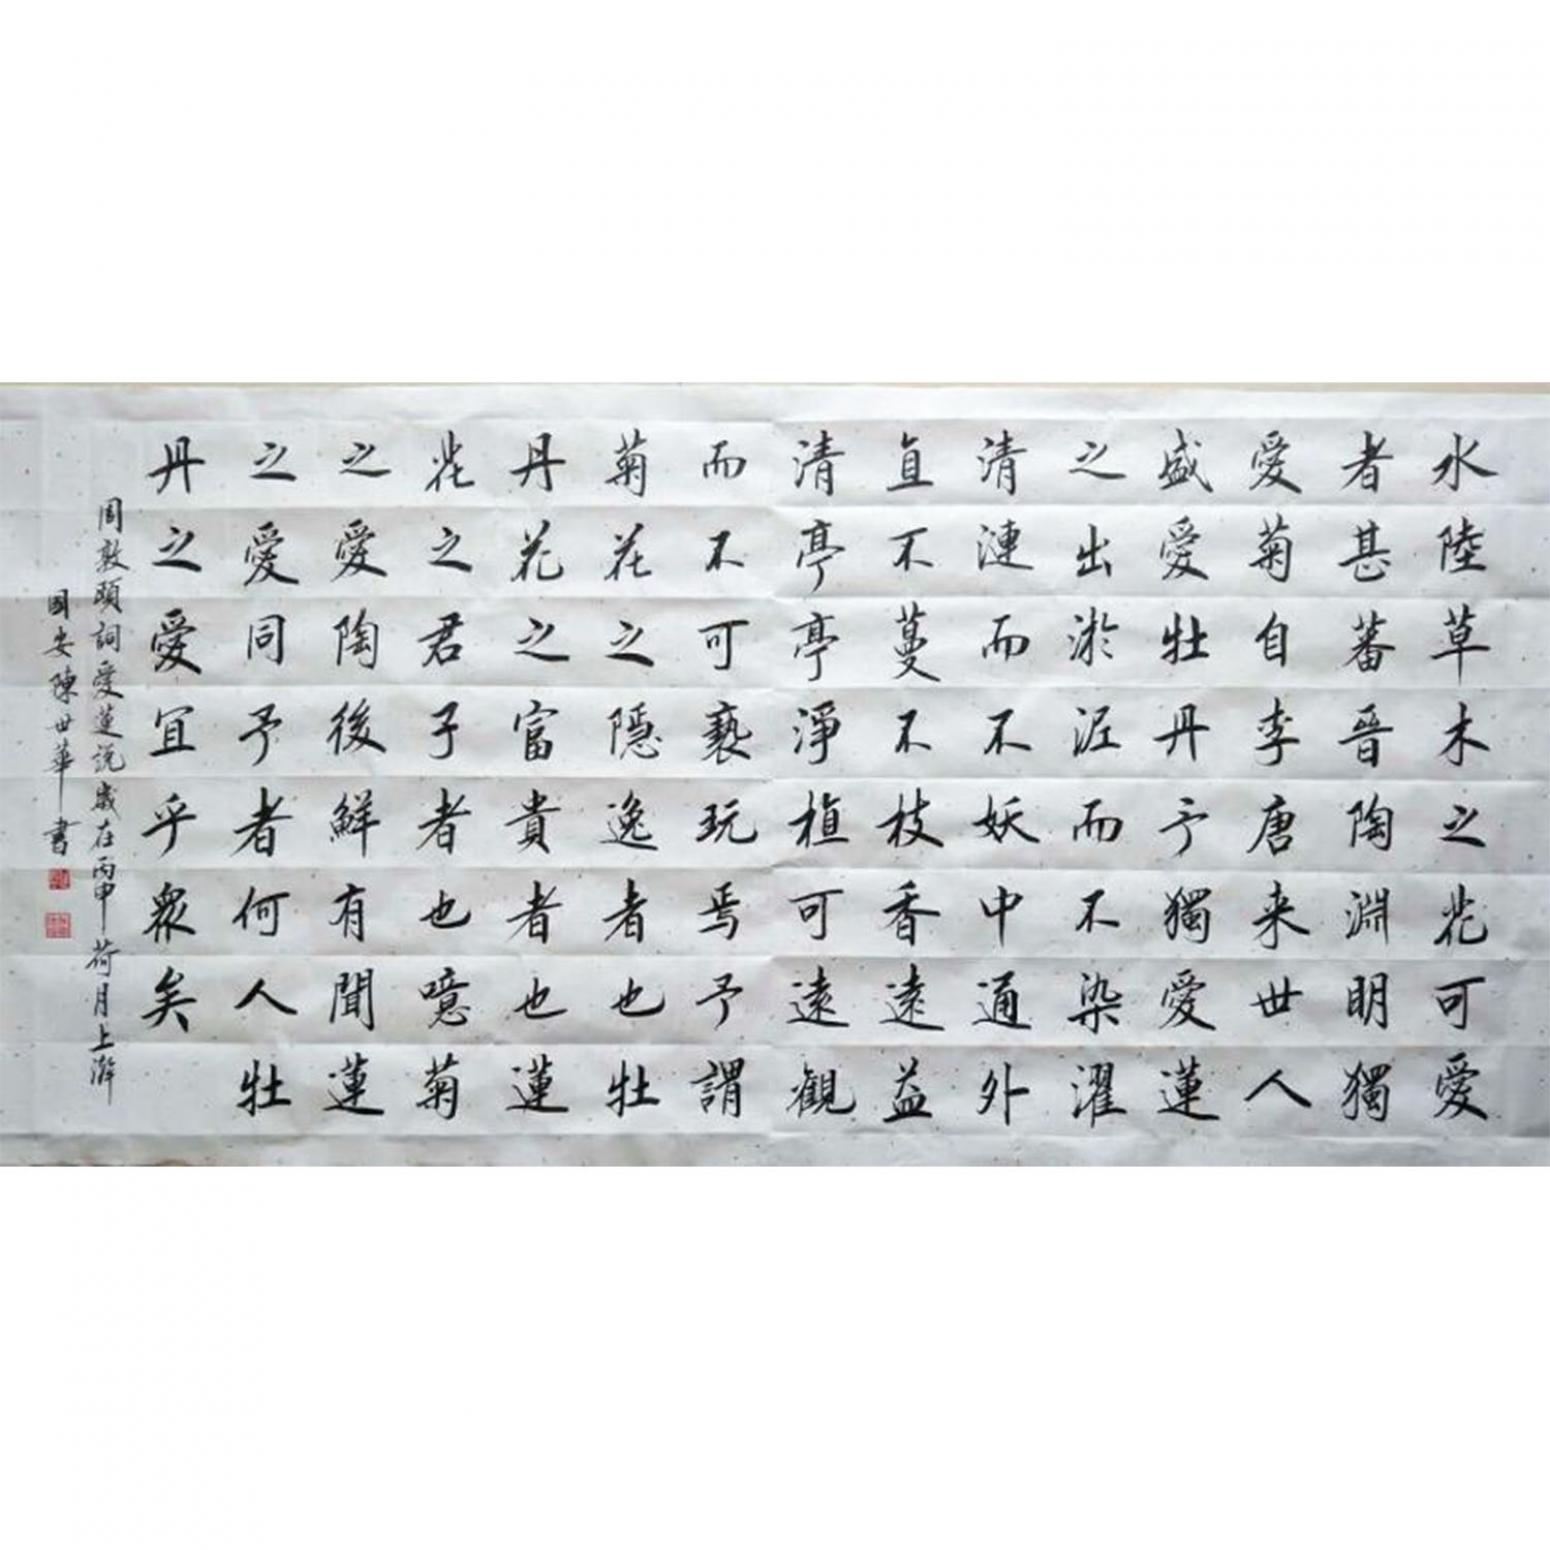 水陸草木之花可愛
者甚蕃晉陶淵明獨
愛菊自李唐来世人
盛愛牡丹予獨愛蓮
之出淤泥而不染濯
清漣而不妖中通外
直不蔓不枝香遠益
清亭亭淨植可遠觀
而不可褻玩焉予謂
菊花之隱逸者也牡
丹花之富貴者也蓮
花之君子者也噫菊
之愛陶後鮮有聞蓮
之愛同予者何人牡
丹之愛宜乎眾矣
周敦頤詞愛蓮説歲在丙申荷月上澣
國安陳世華書